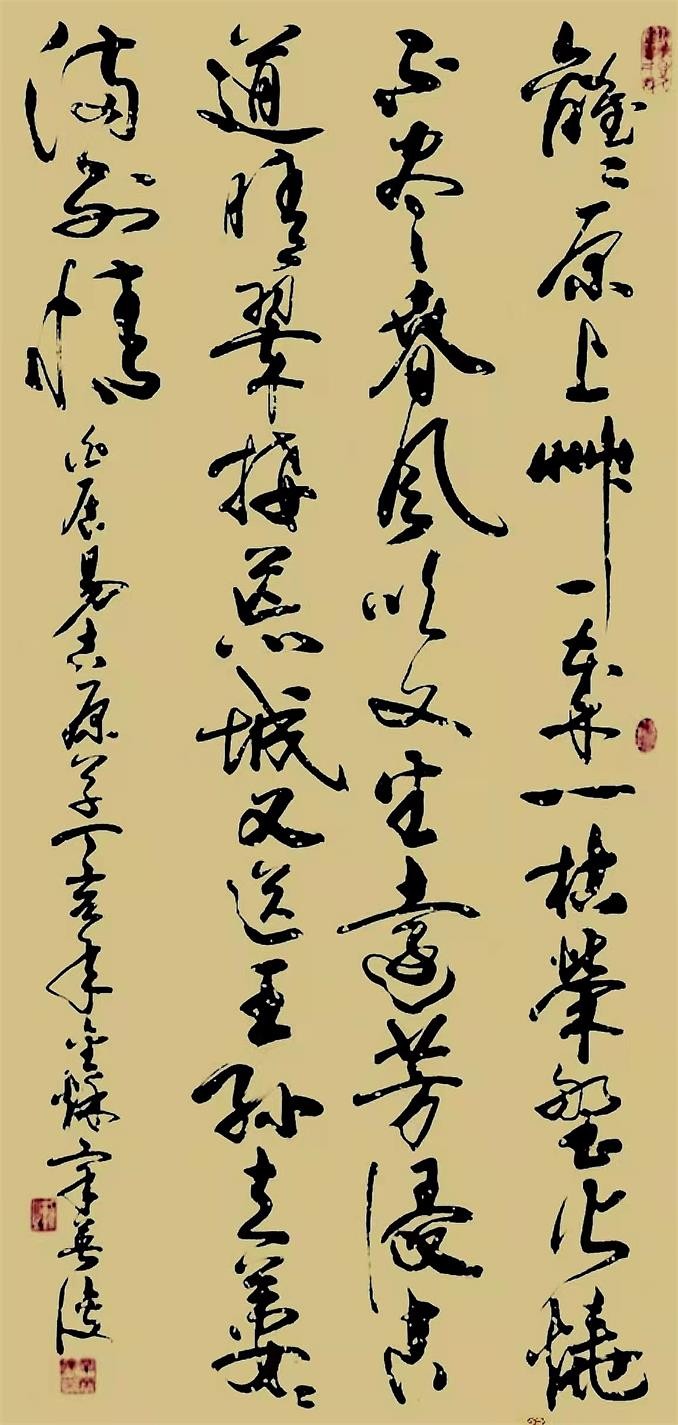 離々原上艸一歲一枯榮埜火燒
不尽春风吹又生遠芳侵古
道晴翠接荒城又送王孫去萋々
滿別情
白居易古原草丁亥年金秋